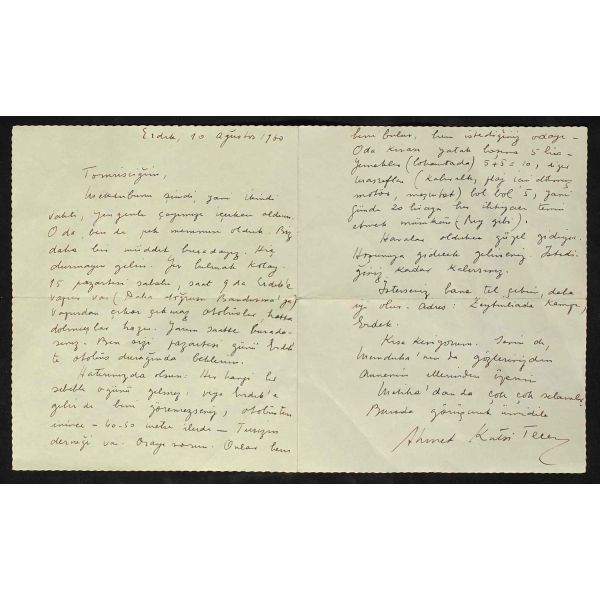 Erdek, 10 Ağustos 1960
Mektubunu şimdi, yani ikindi
vakti, yengenle çayımızı içerken aldım.
O da ben de pek memnun olduk. Biz
daha bir müddet buradayız. Hiç
durmayın gelin. Yer bulmak kolay.
15 pazartesi sabahı, saat 9 da Erdek'e
vapur var (Daha doğrusu Bandırma'ya)
Vapurdan çıkar çıkmaz otobüsler, hatta
dolmuşlar hazır. Yarım saatte burada-
sınız. Ben sizi pazartesi günü Erdek
te otobüs durağında beklerim.
Hatırınızda olsun: Her hangi bir
sebeble o günü gelmez veya Erdek'e
gelir de beni göremezseniz, otobüsten
inince - 40-50 metre ileride - Turizm
derneği var. Orayı sorun. Onlar hem
beni bulur, hem istediğiniz odayı -
Oda kirası yatak başına 5 lira -
Yemekler (lokantada) 5+5=10, diğer
masraflar (kahvaltı, plaj için
motör, meşrubat) bol bol 5, yani
günde 20 liraya her ihtiyacı temin
etmek mümkün (Bey gibi).
Havalar oldukça güzel gidiyor.
Hoşunuza gidecek gelirseniz. İstedi-
ğiniz kadar kalırsınız.
İsterseniz bana tel çekin, daha
iyi olur. Adres: Zeytinliada Kampı,
Erdek.
Kısa kesiyorum. Senin de,
da gözlerinizden
Annenin ellerinden öperim
Meliha'dan da çok çok selamlar
Burada görüşmek ümidile
Ahmet Kutsi Tecer